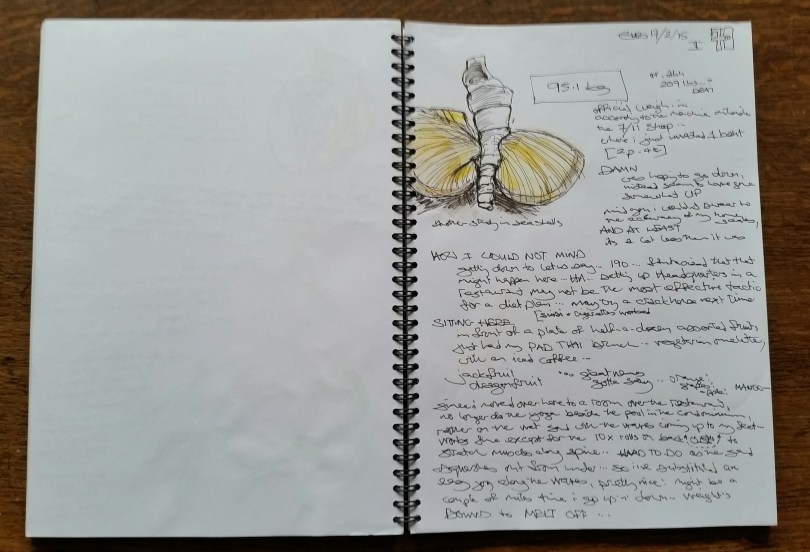 9/2/15
95.1 kg
209 lbs...
official weigh in
according to the machine outside
the 7/11 shop...
where i just invested 1 baht
[2p. 4¢]
DAMN
was hoping to go down,
instead seem to have gone
somewhat UP
mind you, wouldn't swear to
the accuracy of my home scales,
AND AT LEAST
its a lot less than it was
another study in sea shells
NOW I COULD NOT MIND
getting down to let us say.. 190...
might happen here - HA.. setting up Headquarters in a
restaurant may not be the most effective tactic
for a diet plan... may try a crackhouse next time
SITTING HERE
in front of a plate of half-a-dozen assorted fruits
just had my PAD THAI brunch.. vegetarian omelette,
with an iced coffee...
jackfruit
dragonfruit
... great names
gotta say .. orange;
grapes;
apple; MANGO
since i moved over here to a room over the restaurant,
no longer do the yoga beside the pool in the condominium,
rather on the wet sand with the waves coming up to my feet..
works fine except for the 10x rolls on back to
stretch muscles along spine.. HARD TO DO as the sand
squashes out from under... so i've substituted an
easy jog along the waves, pretty nice; might be a
couple of miles time i go up 'n' down.. weight's
BOUND to MELT OFF ...